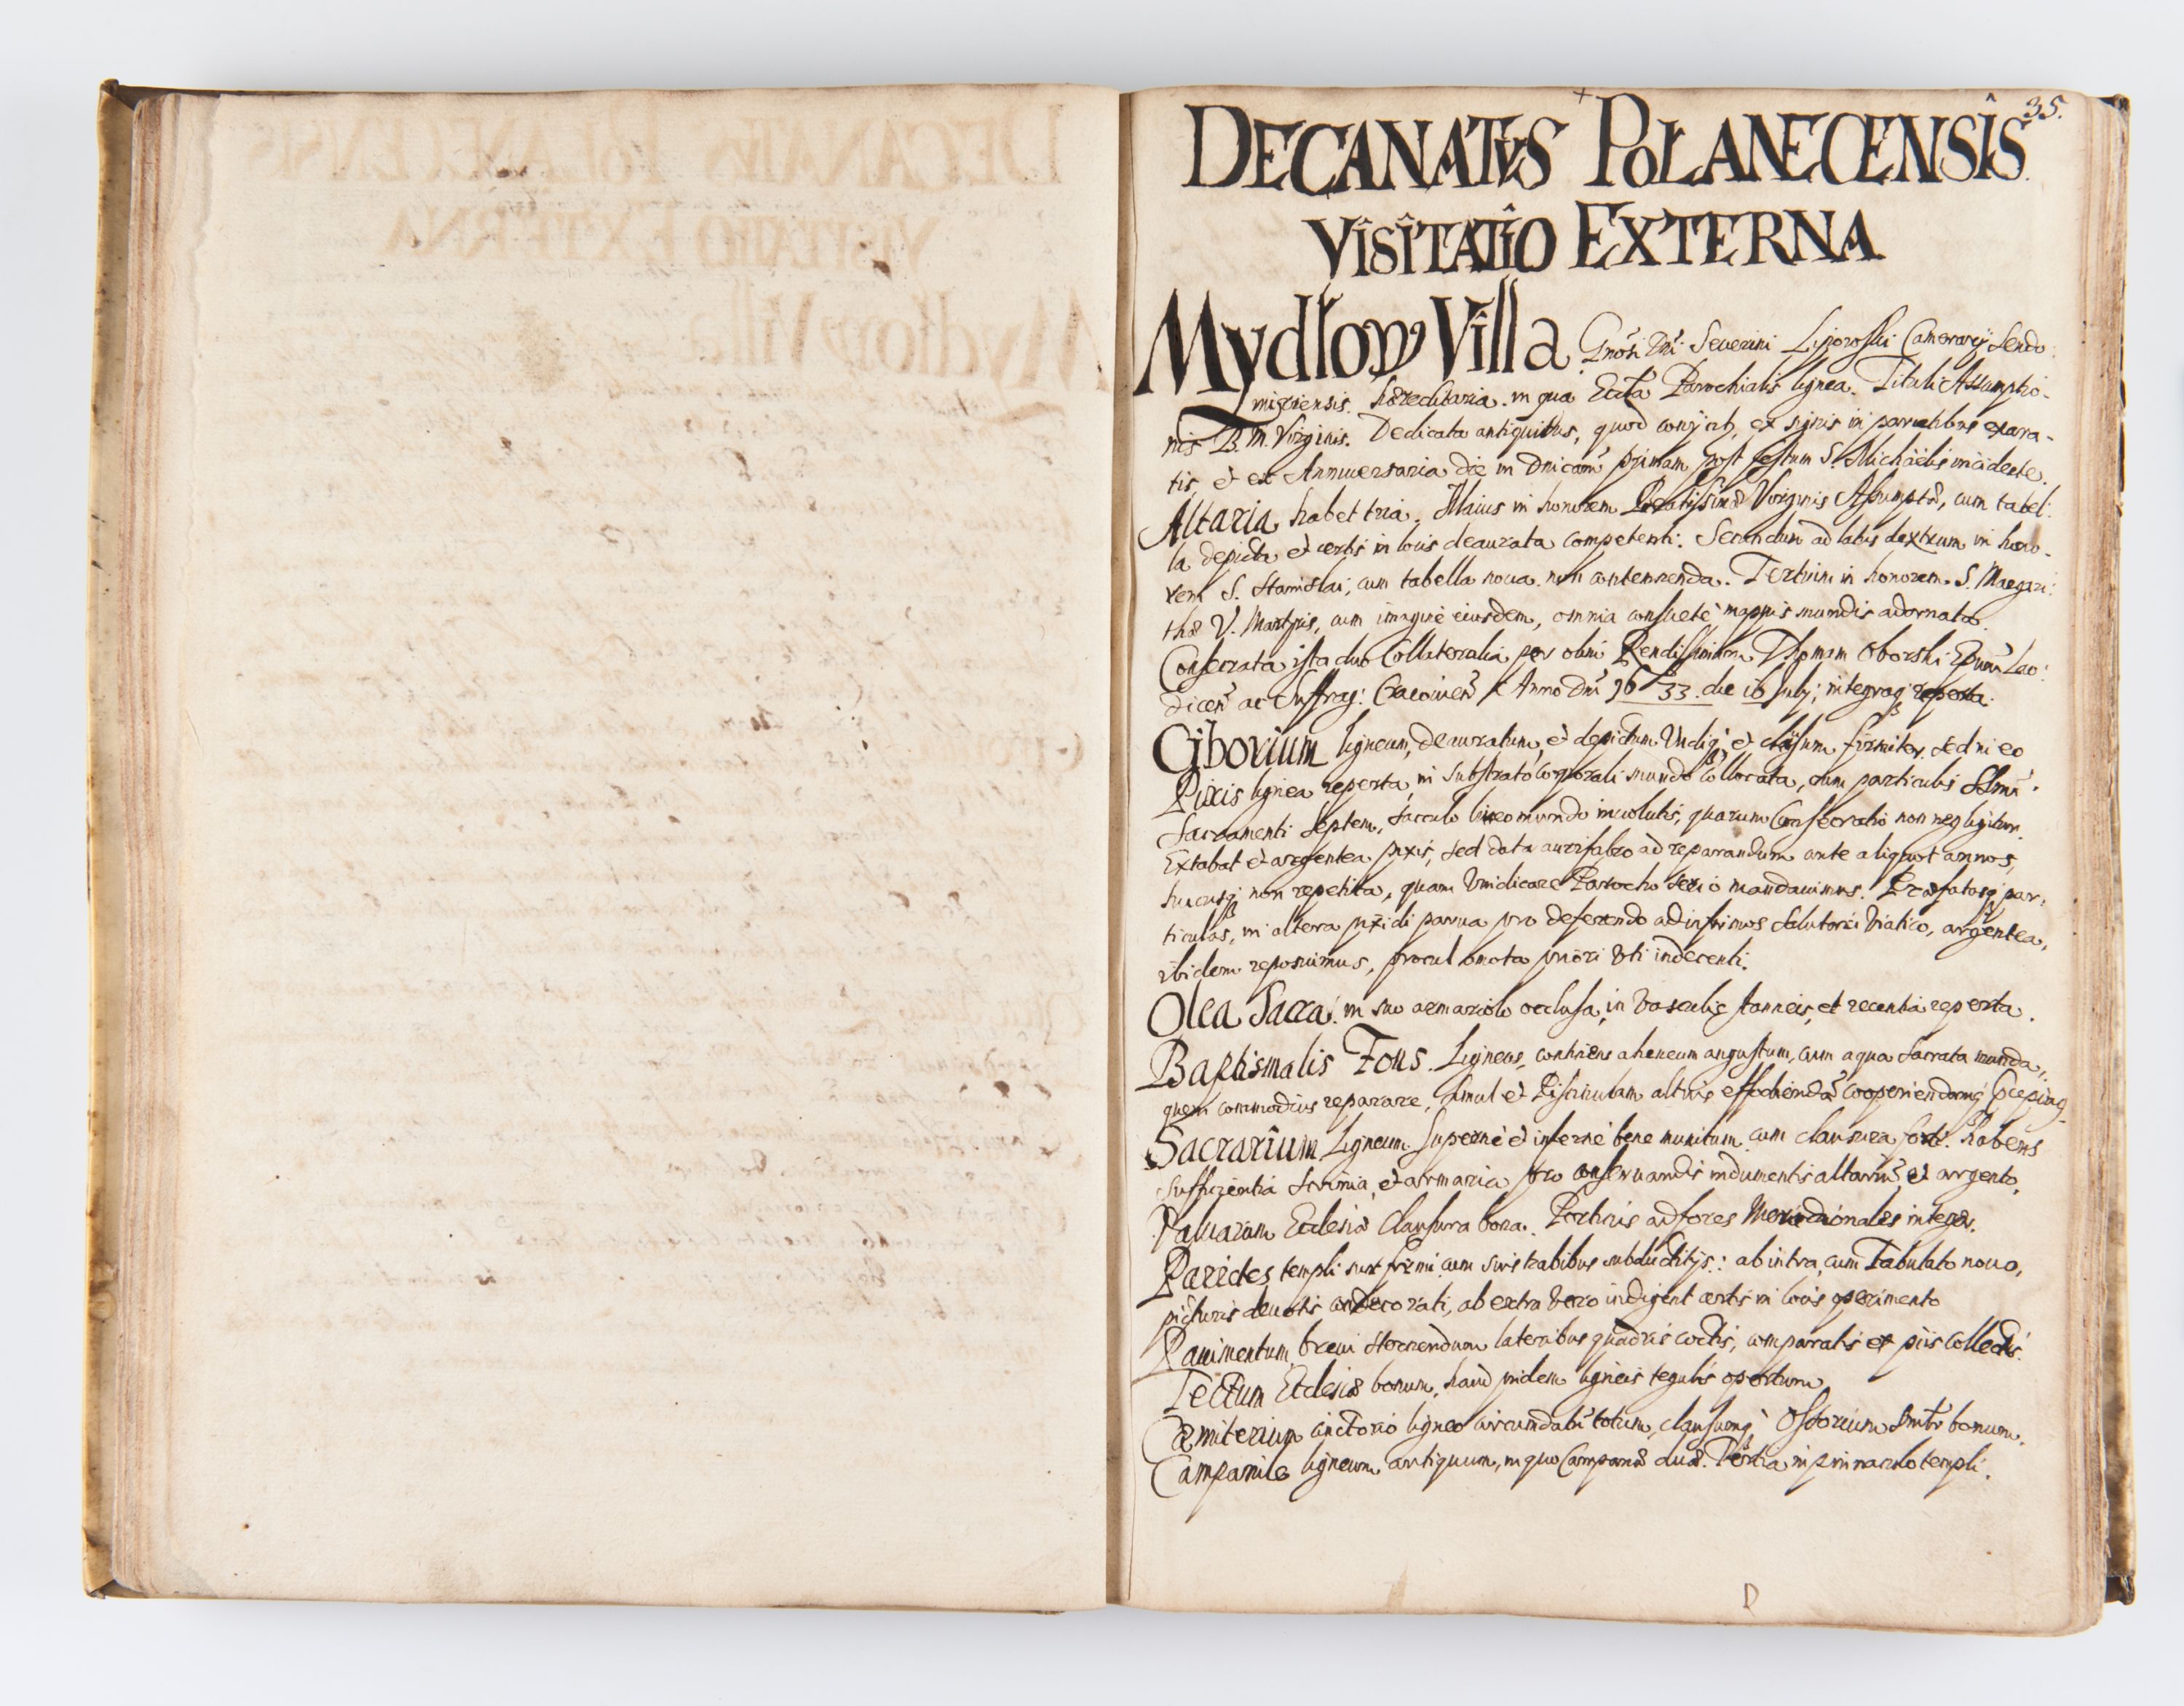 35.
DECANATVS POŁANECENSIS
VISITATIO EXTERNA
Mydłow Villa Gnosi Dni Seuerini Camerarij Sendo
miriensis hæreditaria. in qua Eccla Parochialis lignea. Tituli Assumptio-
nis B. M. Virginis. Dedicata antiquitus, quod ex signis in parietibus exara-
tis, et ex Anniuersaria die in Dnicam primam post festum S. Michaëlis incidente.
Altaria habet tria. Maius in honorem Beatissimæ Virginis Assumptæ, cum tabel-
la depicta et certis in locis deaurata competenti. Secundum ad latus dextrum in hono-
rem S. Stanislai, cum tabella noua non contemnenda. Tertium in honorem S. Margari:
thæ V. Martyris, cum imagine eiusdem, omnia consueté mappis mundis adornata.
Consecrata ista duo Collateralia per olim Rendissimum Thomam Oborski Epum Lao:
dicen ac Suffrag: Cracouien Anno Dni 1633. die 10 July, integraq reperta.
Ciborium ligneum, deauratum, et depictum Vndiq et clausum firmiter. sed in eo
Pixis lignea reperta, in substrato corporali mundo collocata, cum particulis SSmi
Sacramenti septem, sacculo lineo mundo inuolutis, quarum Consecratio non negligitur.
Extabat et argentea pixis, sed data aurifabro ad reparandum ante aliquot annos,
hucusq non repetita, quam Vindicare Parocho serio mandauimus. Præfatasq par-
ticulas, in altera pixidi parua pro deferendo ad infirmos salutari Viatico, argentea,
ibidem reposuimus, procul amota priori Vti indecenti.
Olea Sacra. in suo armariolo occlusa, in Vasculis stanneis, et recentia reperta.
Baptismalis Fons. Ligneus, continens aheneum angustum, cum aqua sacrata munda,
quem commodius reparare, simul et Piscinulam altius effodiendam cooperiendamq
Sacrarium Ligneum. superné et inferné bene munitum cum clausura forti. habens
sufficientia scrinia, et armaria pro conseruandis indumentis altarium et argento.
Valuarum Ecclesiæ Clausura bona. Porticus ad fores Meridionales integra.
Parietes templi sunt firmi cum suis trabibus subductitijs: ab intra, cum Tabulato nouo,
picturis deuotis condecorati, ab extra Vero indigent certis in locis operimento
Pauimentum breui sternendum lateribus quadris coctis, comparatis ex piis collectis.
Tectum Ecclesiæ bonum, haud pridem ligneis tegulis opertum
Cæmiterium cinctorio ligneo circumdatum totum, clausumq Ostorium bonum.
Campanile ligneum antiquum, in quo Campanæ duæ. Tertia in pinnaculo templi.